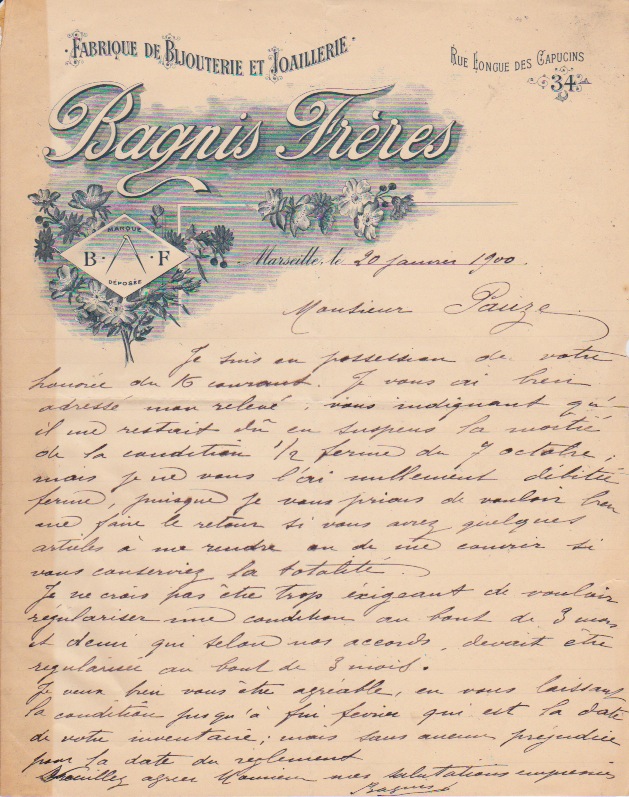 FABRIQUE DE BIJOUTERIE ET JOAILLERIE
RUE LONGUE DES CAPUCINS
34
Bagnis Frères
MARQUE
B · F
DÉPOSÉE
Marseille, le 20 janvier 1900.
Monsieur Pauze
Je suis en possession de votre
honorée du courant. Je vous ai bien
adressé mon relevé, vous indiquant qu'
il me restait dû en suspens la moitié
de la condition 1/2 ferme du 7 octobre,
mais je ne vous l'ai nullement débitée
ferme, puisque je vous priais de vouloir bien
me faire le retour si vous avez quelques
articles à me rendre ou de me couvrir si
vous conserviez la totalité.
Je ne crois pas être trop éxigeant de vouloir
regulariser une condition au bout de 3 mois
et demi qui selon nos accords, devait être
regularisée au bout de 3 mois.
Je veux bien vous être agréable, en vous laissant
la condition jusqu'à fin fevrier qui est la date
de votre inventaire; mais sans aucun prejudice
pour la date du reglement
Veuillez agreer Monsieur mes salutations empressées
Bagnis